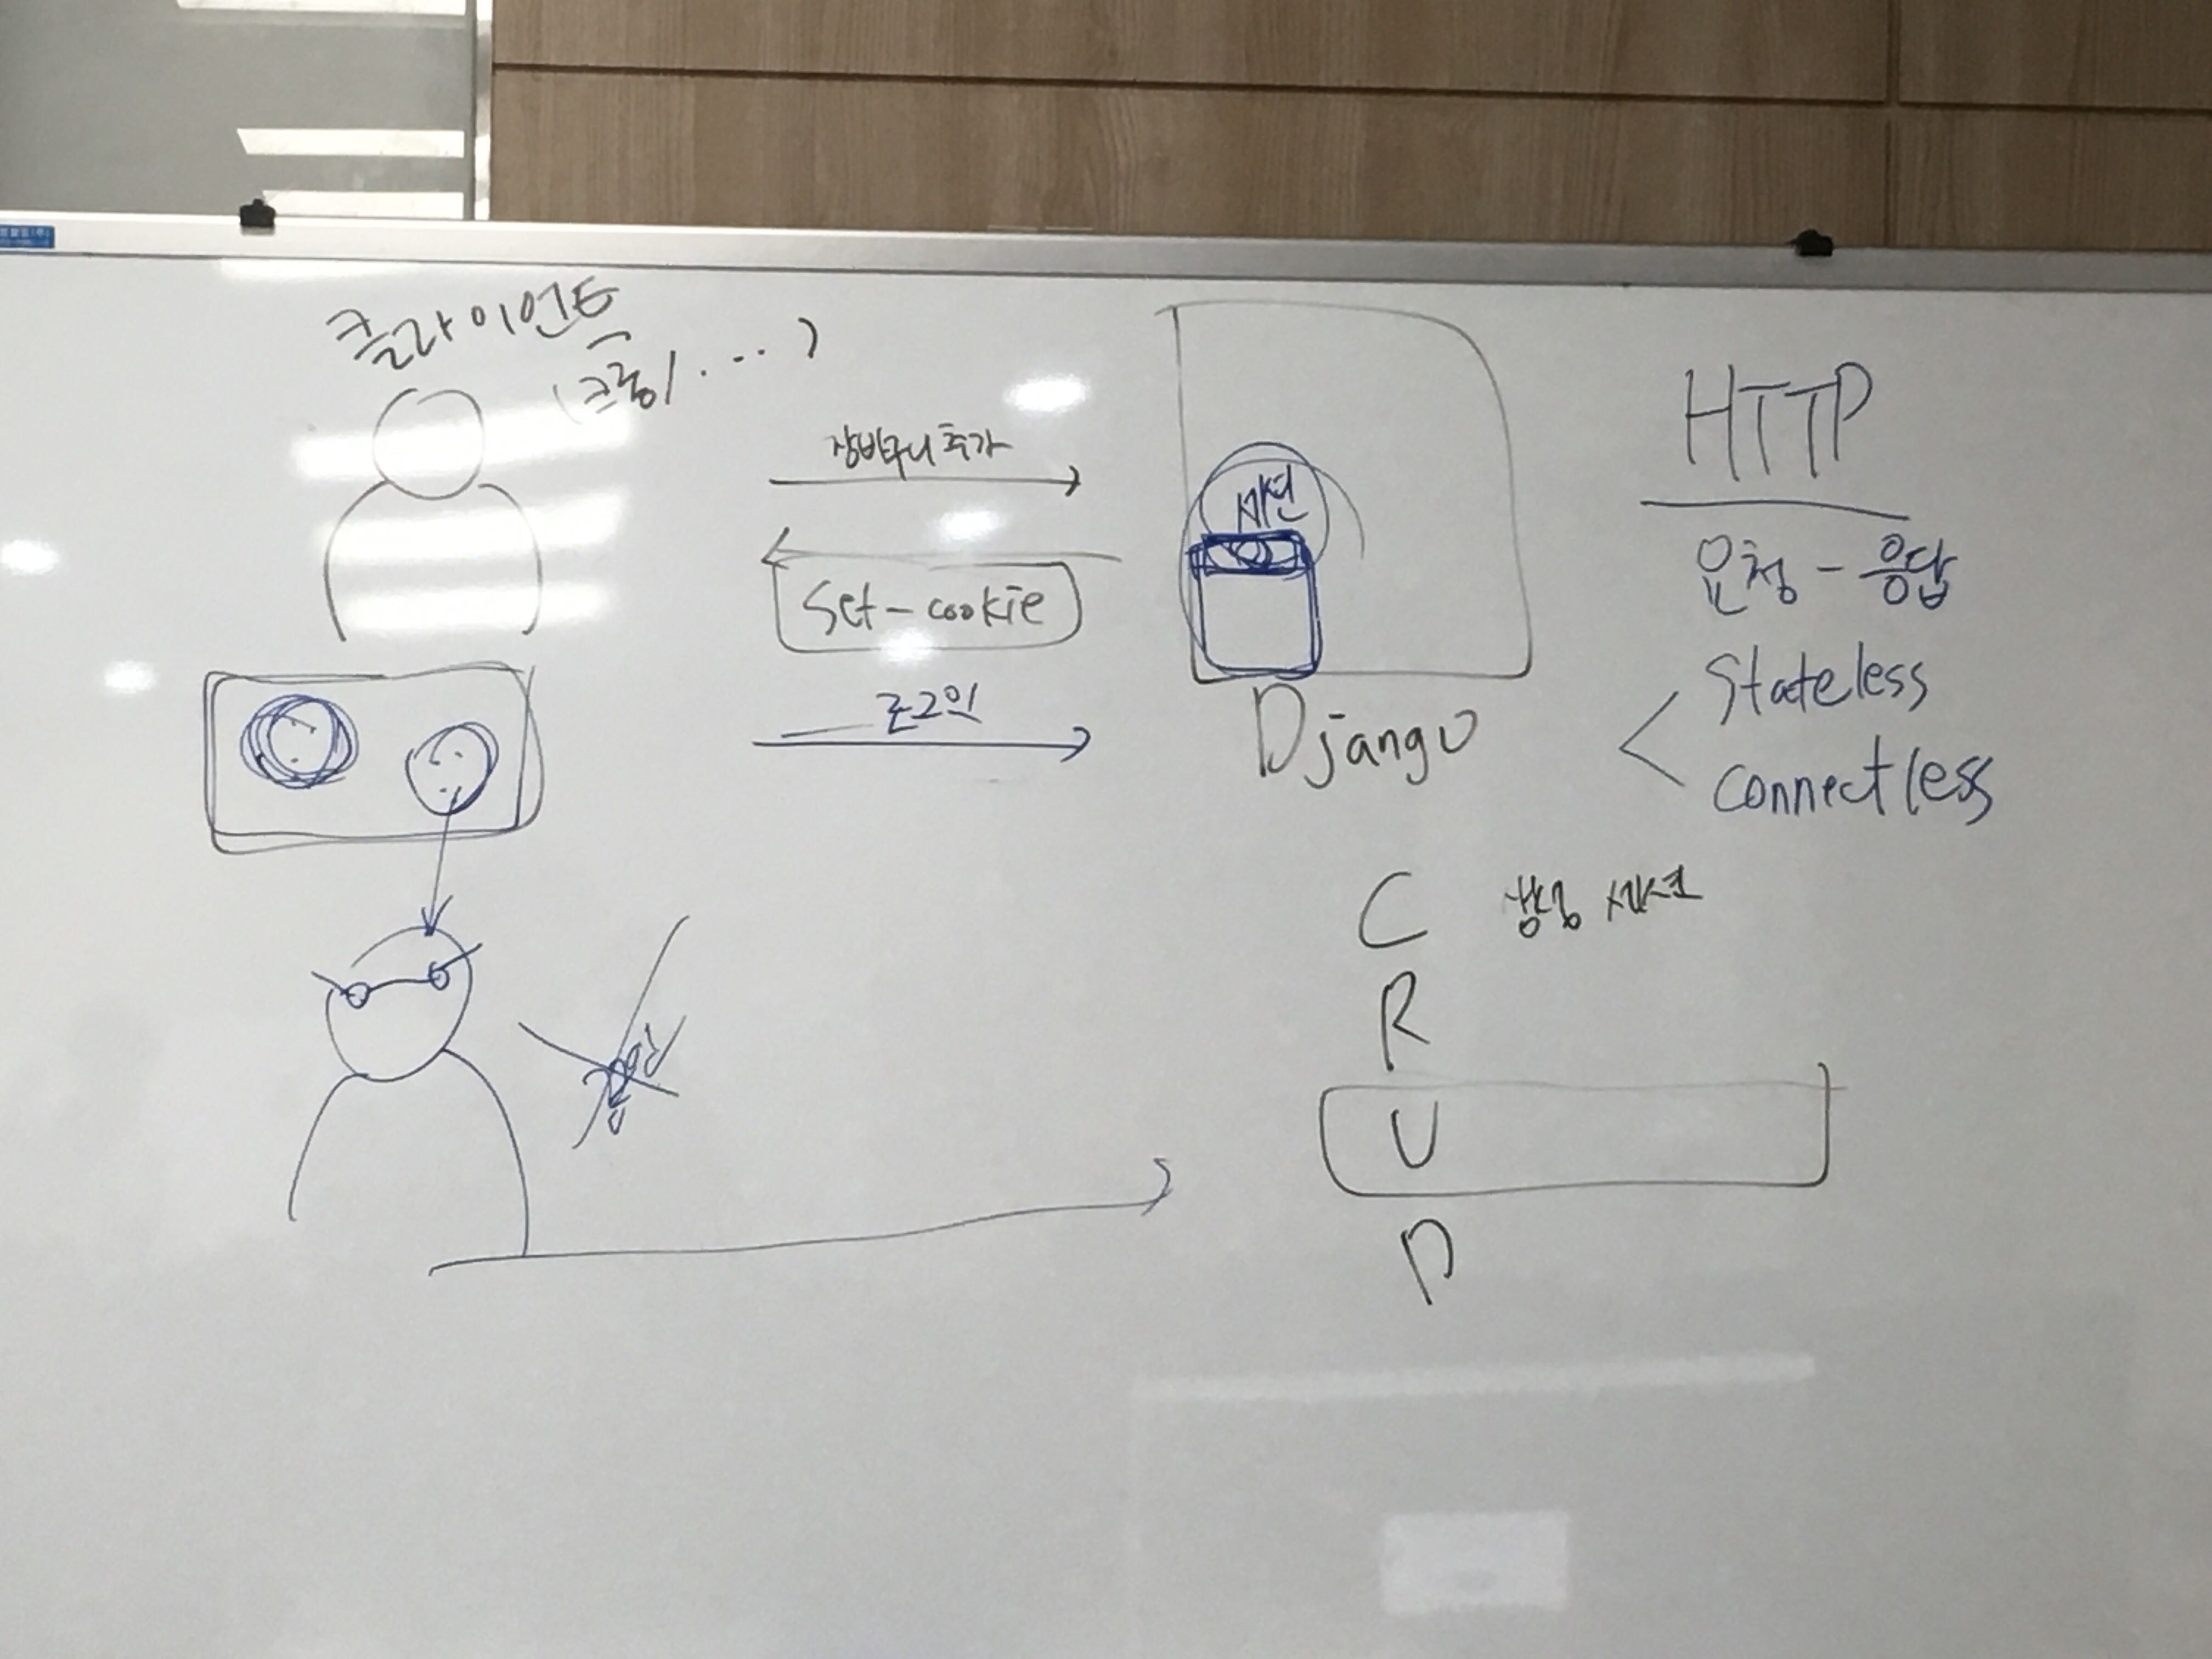 클라이언트
(크롬/....)
장바구니 추가
Set-cookie
로그인
세션
Django
HTTP
요청-응답
Stateless
connectless
C
R
U
D